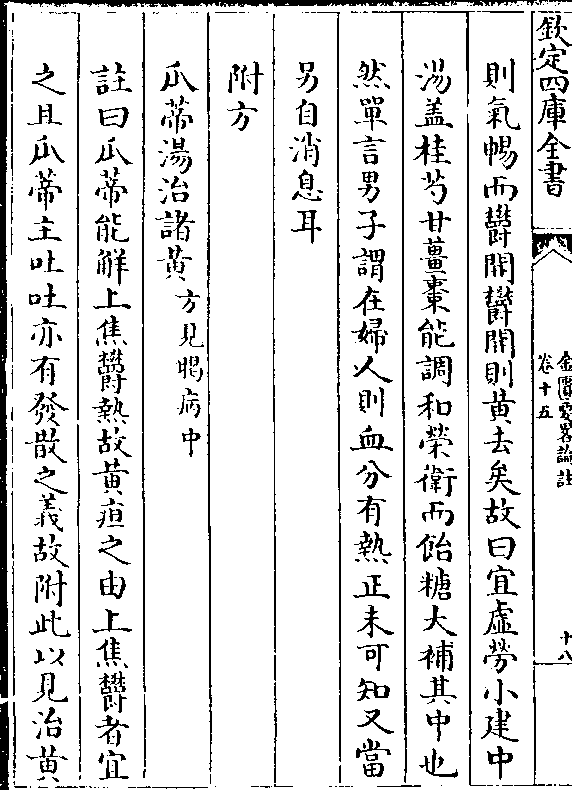 欽定四庫全書
金匱要畧論註
卷十五
十八
則氣暢而欝開欝開則黃去矣故曰宜虛勞小建中
湯盖桂芍甘薑棗能調和榮衛而飴糖大補其中也
然單言男子謂在婦人則血分有熱正未可知又當
另自消息耳
附方
瓜蒂湯治諸黃方見暍病中
註曰瓜蒂能解上焦欝熱故黃疸之由上焦欝者宜
之且瓜蒂主吐吐亦有發散之義故附此以見治黃